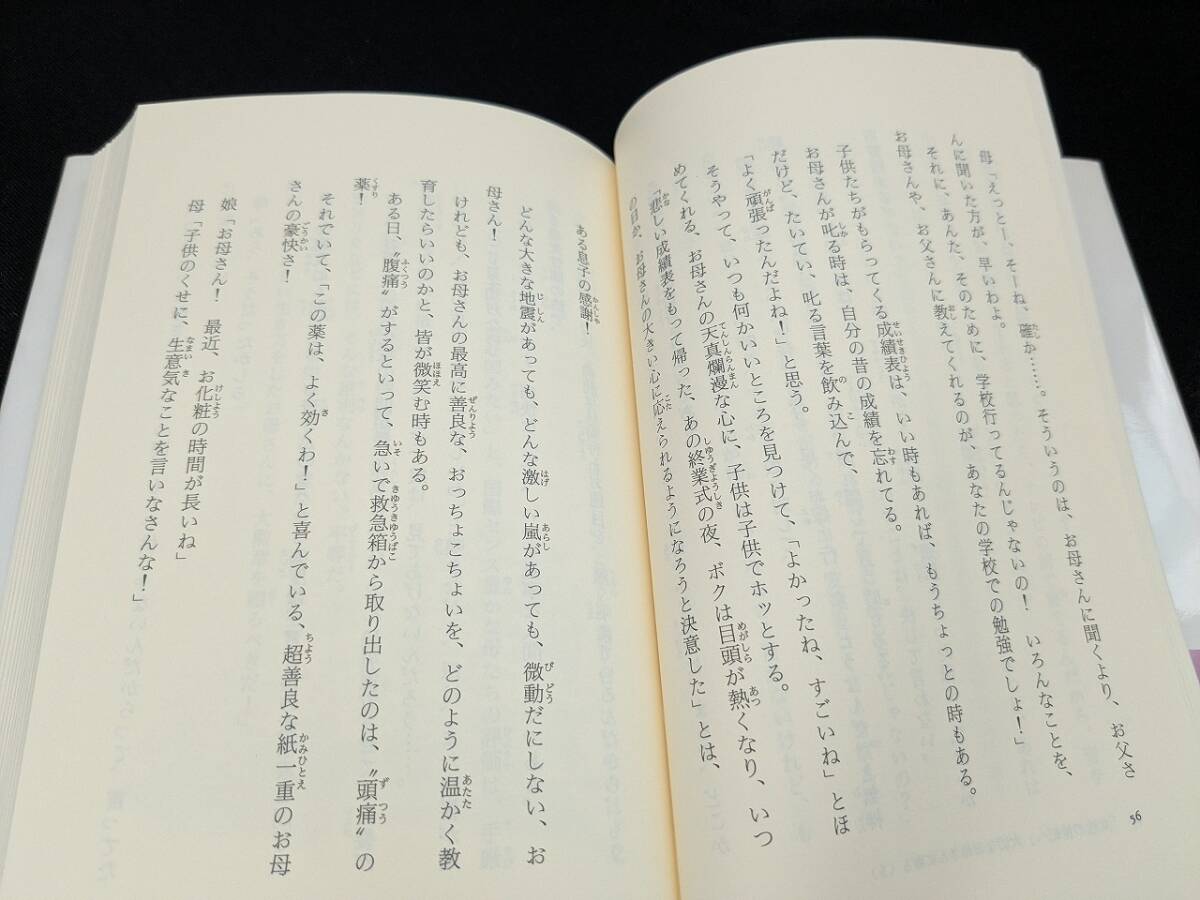 母「えっとー、そーね、確か……。そういうのは、お母さんに聞くより、お父さ
んに聞いた方が、早いわよ。
それに、あんた、そのために、学校行ってるんじゃないの！　いろんなことを、
お母さんや、お父さんに教えてくれるのが、あなたの学校での勉強でしょ！」
子供たちがもらってくる成績表は、いい時もあれば、もうちょっとの時もある。
お母さんが叱る時は、自分の昔の成績を忘れてる。
だけど、たいてい、叱る言葉を飲み込んで、
「よく頑張ったんだよね！」と思う。
そうやって、いつも何かいいところを見つけて、「よかったね、すごいね」とほ
めてくれる、お母さんの天真爛漫な心に、子供は子供でホッとする。
「悲しい成績表をもって帰った、あの終業式の夜、ボクは目頭が熱くなり、いつ
の日か、お母さんの大きい心に応えられるようになろうと決意した」とは、
56
ある息子の感謝！
どんな大きな地震があっても、どんな激しい嵐があっても、微動だにしない、お
母さん！
けれども、お母さんの最高に善良な、おっちょこちょいを、どのように温かく教
育したらいいのかと、皆が微笑む時もある。
ある日、〝腹痛〟がするといって、急いで救急箱から取り出したのは、〝頭痛〟の
薬！
それでいて、「この薬は、よく効くわ！」と喜んでいる、超善良な紙一重のお母
さんの豪快さ！
娘「お母さん！　最近、お化粧の時間が長いね」
母「子供のくせに、生意気なことを言いなさんな！」